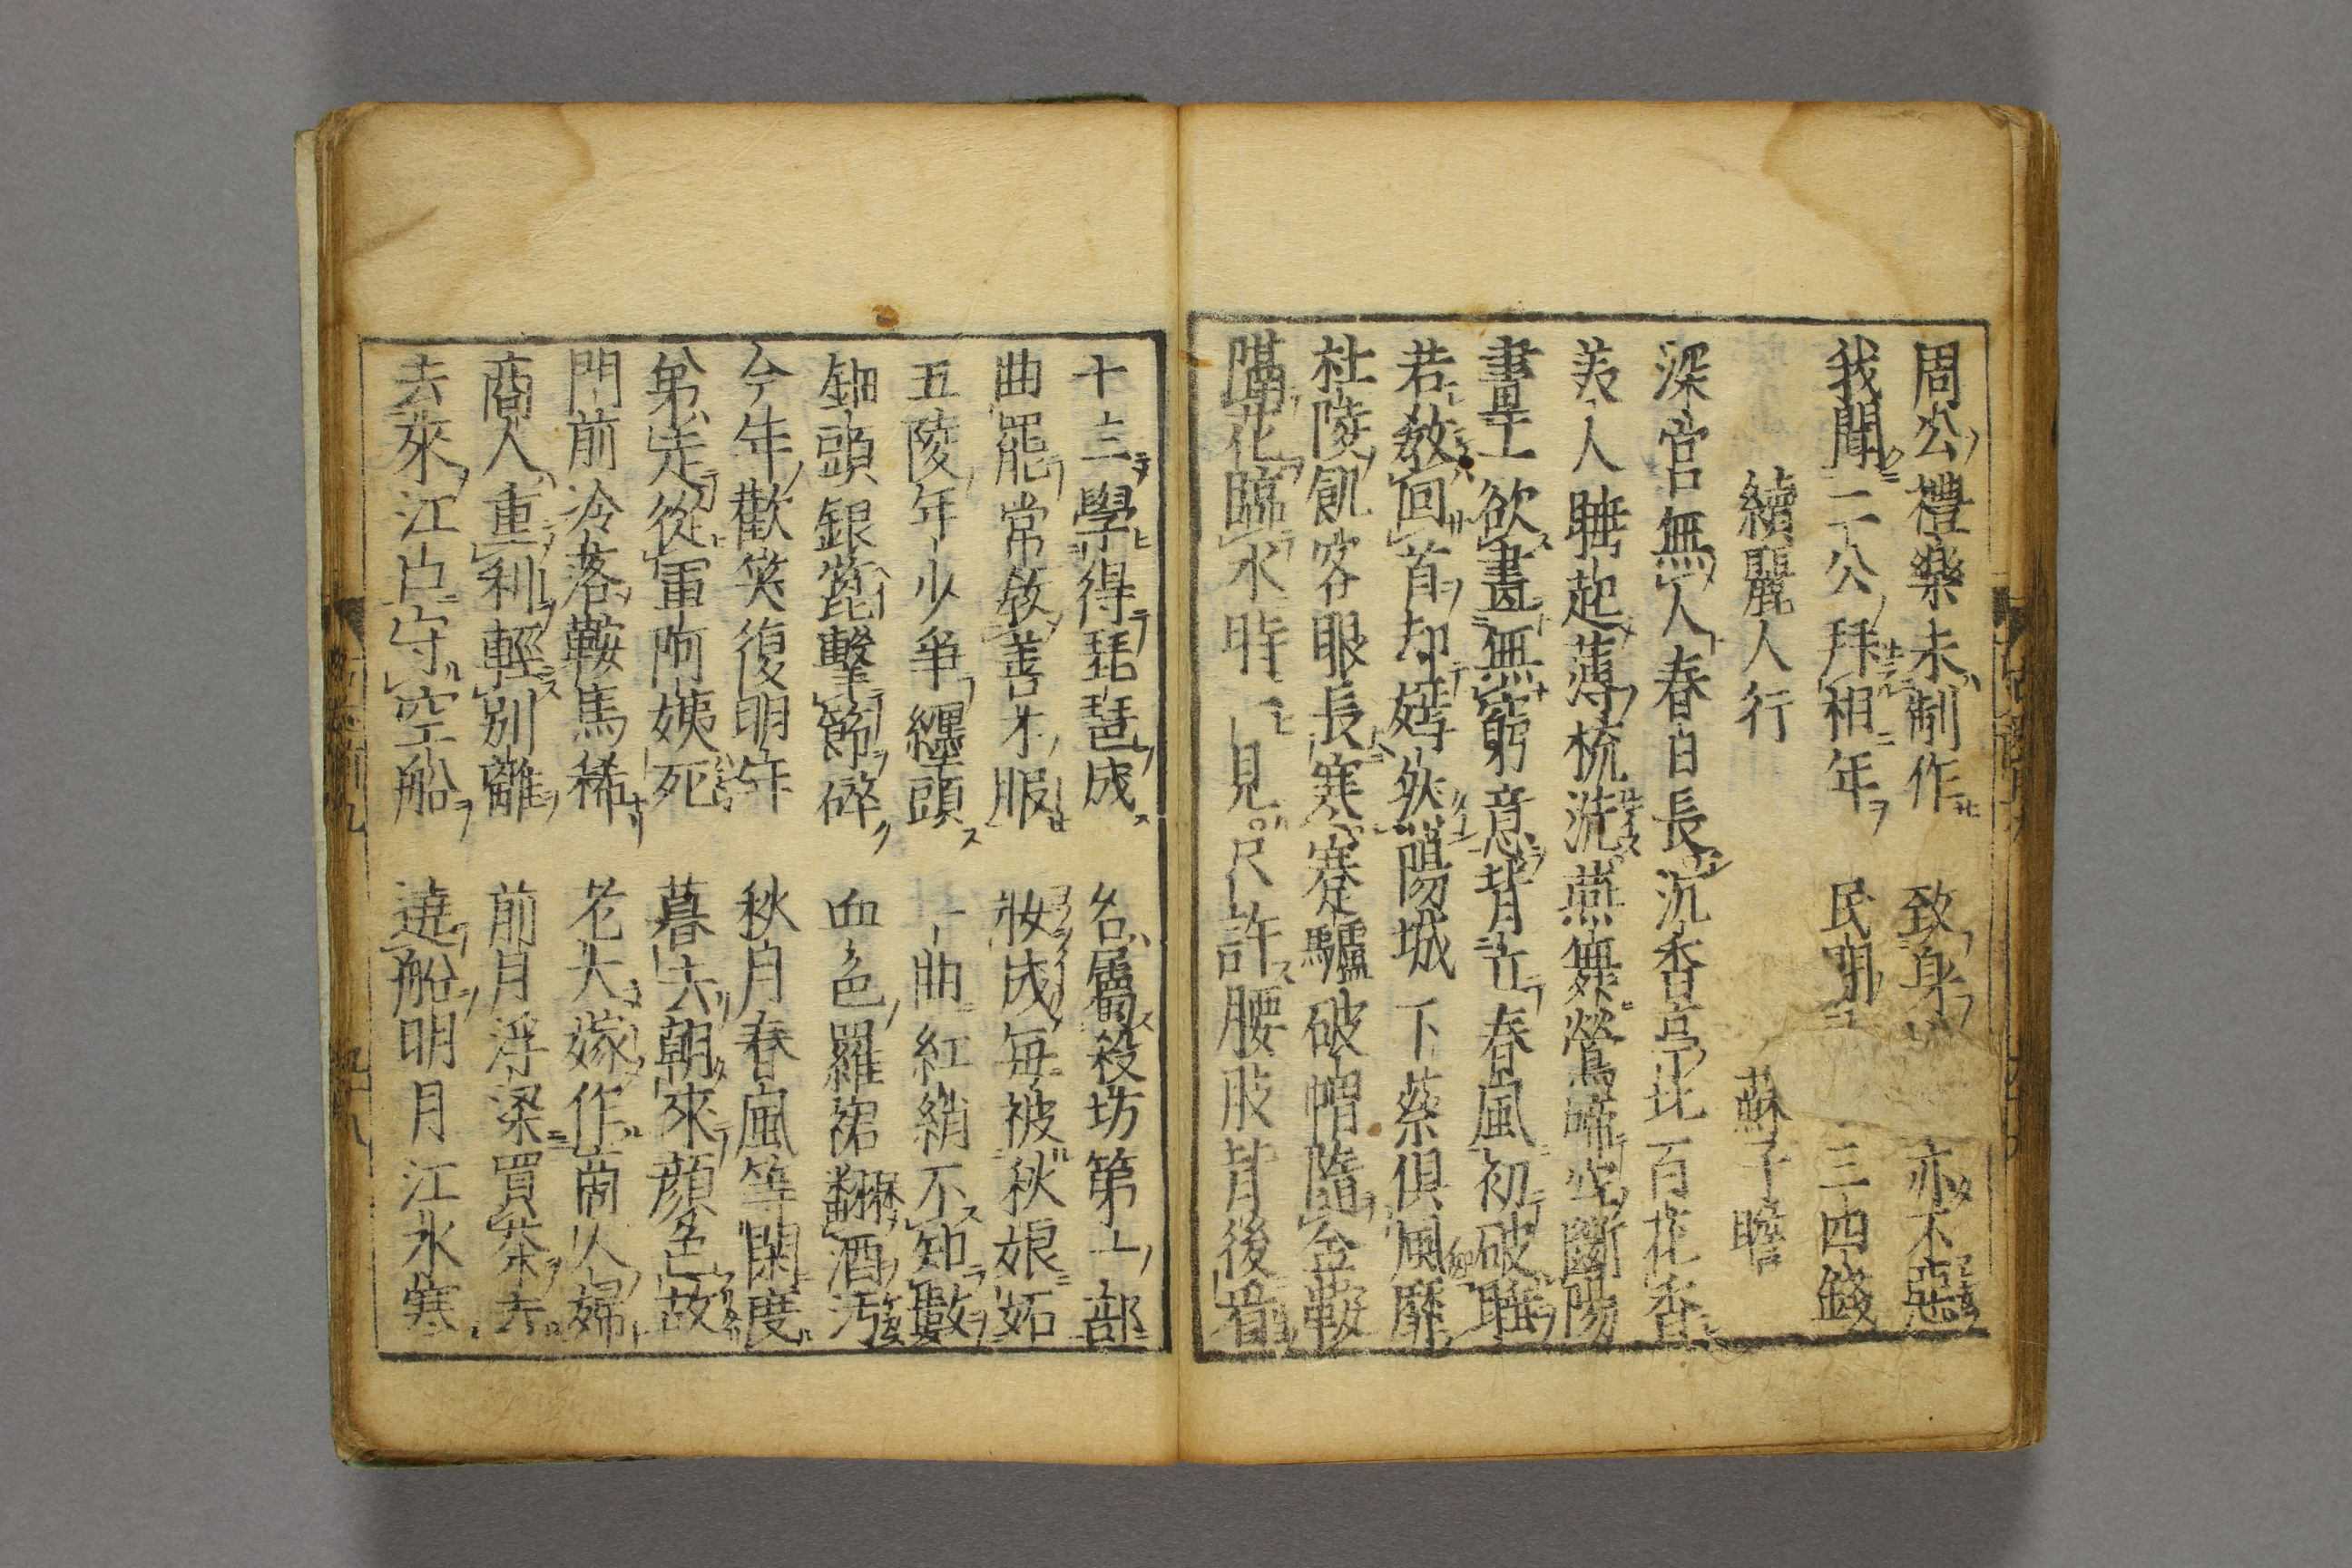 周公禮樂未制作　致身　亦不惡
我聞二公拜相年　民間　三四錢
續麗人行　蘇子瞻
深宮無人春白長沉香亭北百花香
美人睡起薄梳洗燕舞鶯啼空斷陽
畫工欲畫無窮意背立春風初破睡
若敎回首却嫣然陽城下蔡俱風靡
杜陵飢客眼長寒蹇驢破帽隨金鞍
隔花臨水時一見只許腰肢背後看
十三學得琵琶成　名屬殺坊第一部
曲罷常敎善才服　妝成每被秋娘妬
五陵年少爭纏頭　一曲紅綃不知數
鈿頭銀篦擊節碎　血色羅裙翻酒汚
今年歡笑復明年　秋月春風等閑度
弟走從軍阿姨死　暮去朝來顔色故
門前冷落鞍馬稀　老大嫁作商人婦
商人重利輕別離　前月浮梁買茶去
去來江口守空船　遶船明月江水寒